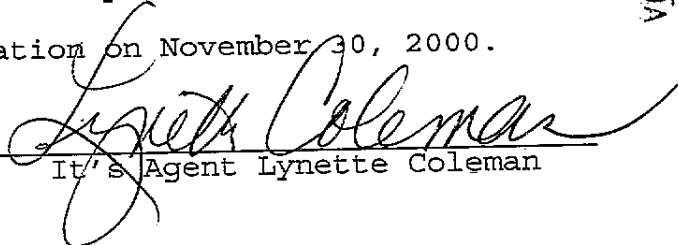 ation on November 30, 2000.
Lynette Coleman
It's Agent Lynette Coleman